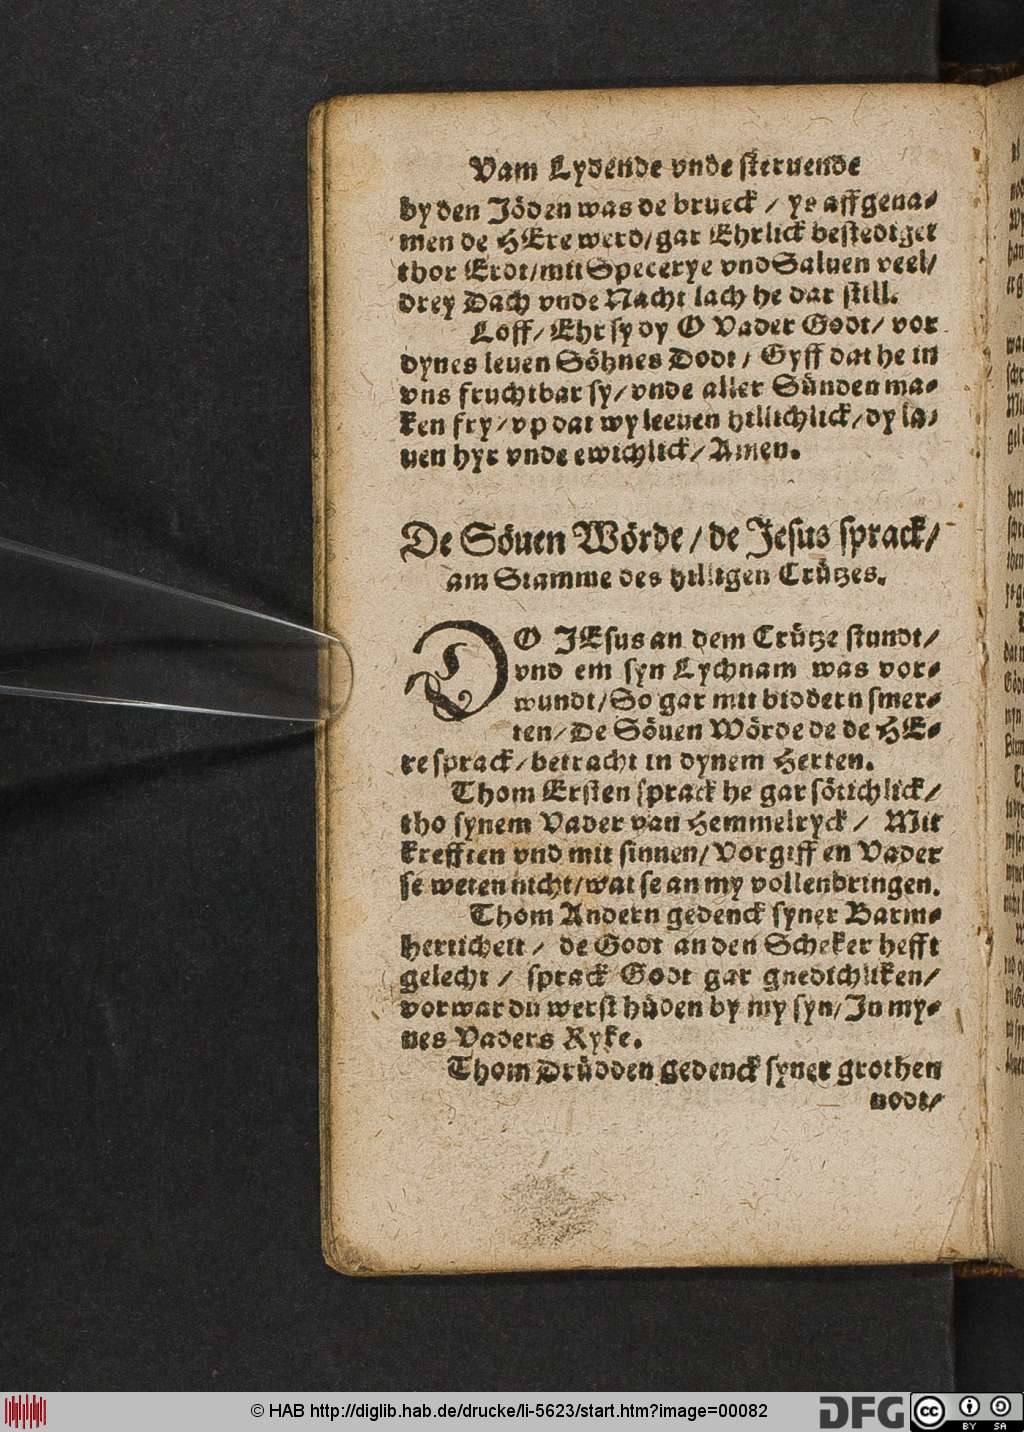 Vam Lydende vnde steruende
by den Jöden was de brueck / ys affgena-
men de HEre werd/gar Ehrlick bestediget
thor Erdt/mit Specerye vnd Saluen veel/
drey Dach vnde Nacht lach he dar still.
Loff/ Ehr sy dy O Vader Godt/ vor
dynes leuen Söhnes Dodt / Gyff dat he in
vns fruchtbar sy/ vnde aller Sünden ma-
ken fry/ vp dat wy leeuen hillichlick/ dy la-
uen hyr vnde ewichlick/ Amen.
De Söuen Wörde / de Jesus sprack/
am Stamme des hilligen Crützes.
DO JEsus an dem Crütze stundt/
vnd em syn Lychnam was vor-
wundt/ So gar mit biddern smer-
ten/ De Söuen Wörde de de HE-
re sprack/ betracht in dynem Herten.
Thom Ersten sprack he gar sötichlick/
tho synem Vader van Hemmelryck / Mit
krefften vnd mit sinnen/ Vorgiff en Vader
se weten nicht/ wat se an my vollenbringen.
Thom Andern gedenck syner Barm-
herticheit / de Godt an den Scheker hefft
gelecht / sprack Godt gar gnedichliken/
vorwar du werst hüden by my syn/ In my-
nes Vaders Ryke.
Thom Drüdden gedenck syner grothen
nodt/
© HAB http://diglib.hab.de/drucke/li-5623/start.htm?image=00082
DFG
cc
BY SA